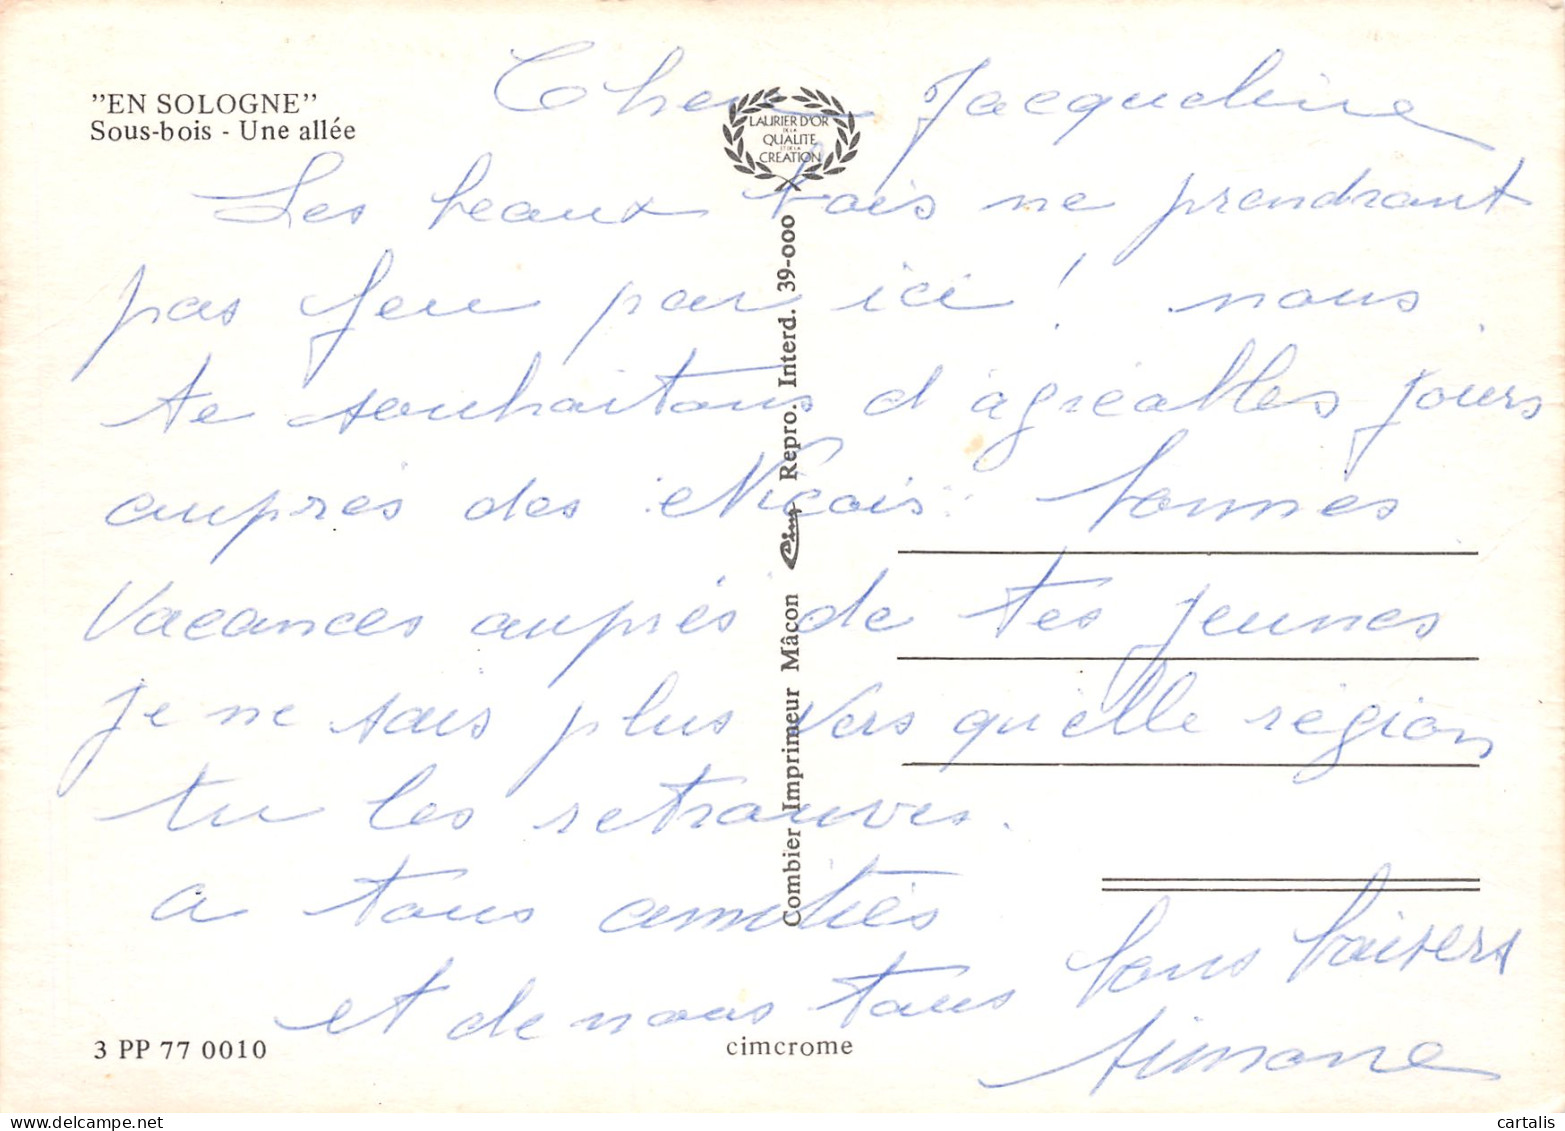 "EN SOLOGNE"
Sous-bois - Une allée
LAURIER D'OR
DE LA
QUALITE
ET DE LA
CREATION
Cher Jacqueline
Les beaux bois ne prendrant
pas feu par ici ! nous
te souhaitons d'agréables jours
auprès des Niçois. bonnes
Vacances auprès de tes jeunes
je ne sais plus vers qu'elle région
tu les retrouves.
a tous amitiés
et de nous tous bons baisers
Simone
Combier Imprimeur Mâcon Cim Repro. Interd. 39-000
3 PP 77 0010
cimcrome
cartalis